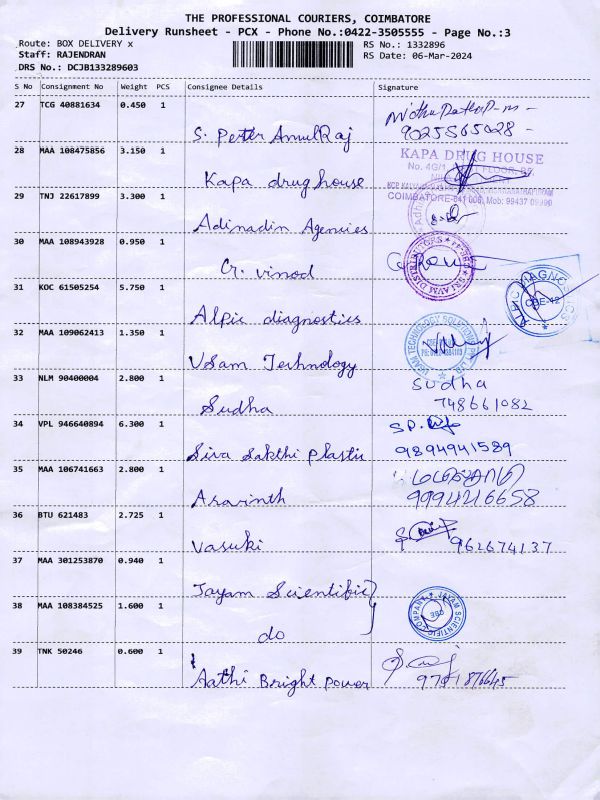 THE PROFESSIONAL COURIERS, COIMBATORE
Delivery Runsheet - PCX - Phone No.:0422-3505555 - Page No.:3
Route: BOX DELIVERY x
RS No.: 1332896
Staff: RAJENDRAN
RS Date: 06-Mar-2024
DRS No.: DCJB133289603
S No Consignment No Weight PCS Consignee Details Signature
27 TCG 40881634 0.450 1
S. Peter AmulRaj
28 MAA 108475856 3.150 1
Kapa drug house
KAPA DRUG HOUSE
COIMBATORE-641 006, Mob: 99437 09990
29 TNJ 22617899 3.300 1
Adinadin Agencies
30 MAA 108943928 0.950 1
Cr. vinod
31 KOC 61505254 5.750 1
Alpic diagnostics
CBE-42
32 MAA 109062413 1.350 1
VSam Technology
33 NLM 90400004 2.800 1
Sudha
Sudha
748661082
34 VPL 946640894 6.300 1
Siva Sakthi Plastic
SP.
9894941589
35 MAA 106741663 2.800 1
Aravinth
9994216658
36 BTU 621483 2.725 1
Vasuki
962674137
37 MAA 301253870 0.940 1
Jayam Scientific
38 MAA 108384525 1.600 1
do
JAYAM SCIENTIFIC COMPANY
39 TNK 50246 0.600 1
Aathi Bright Power